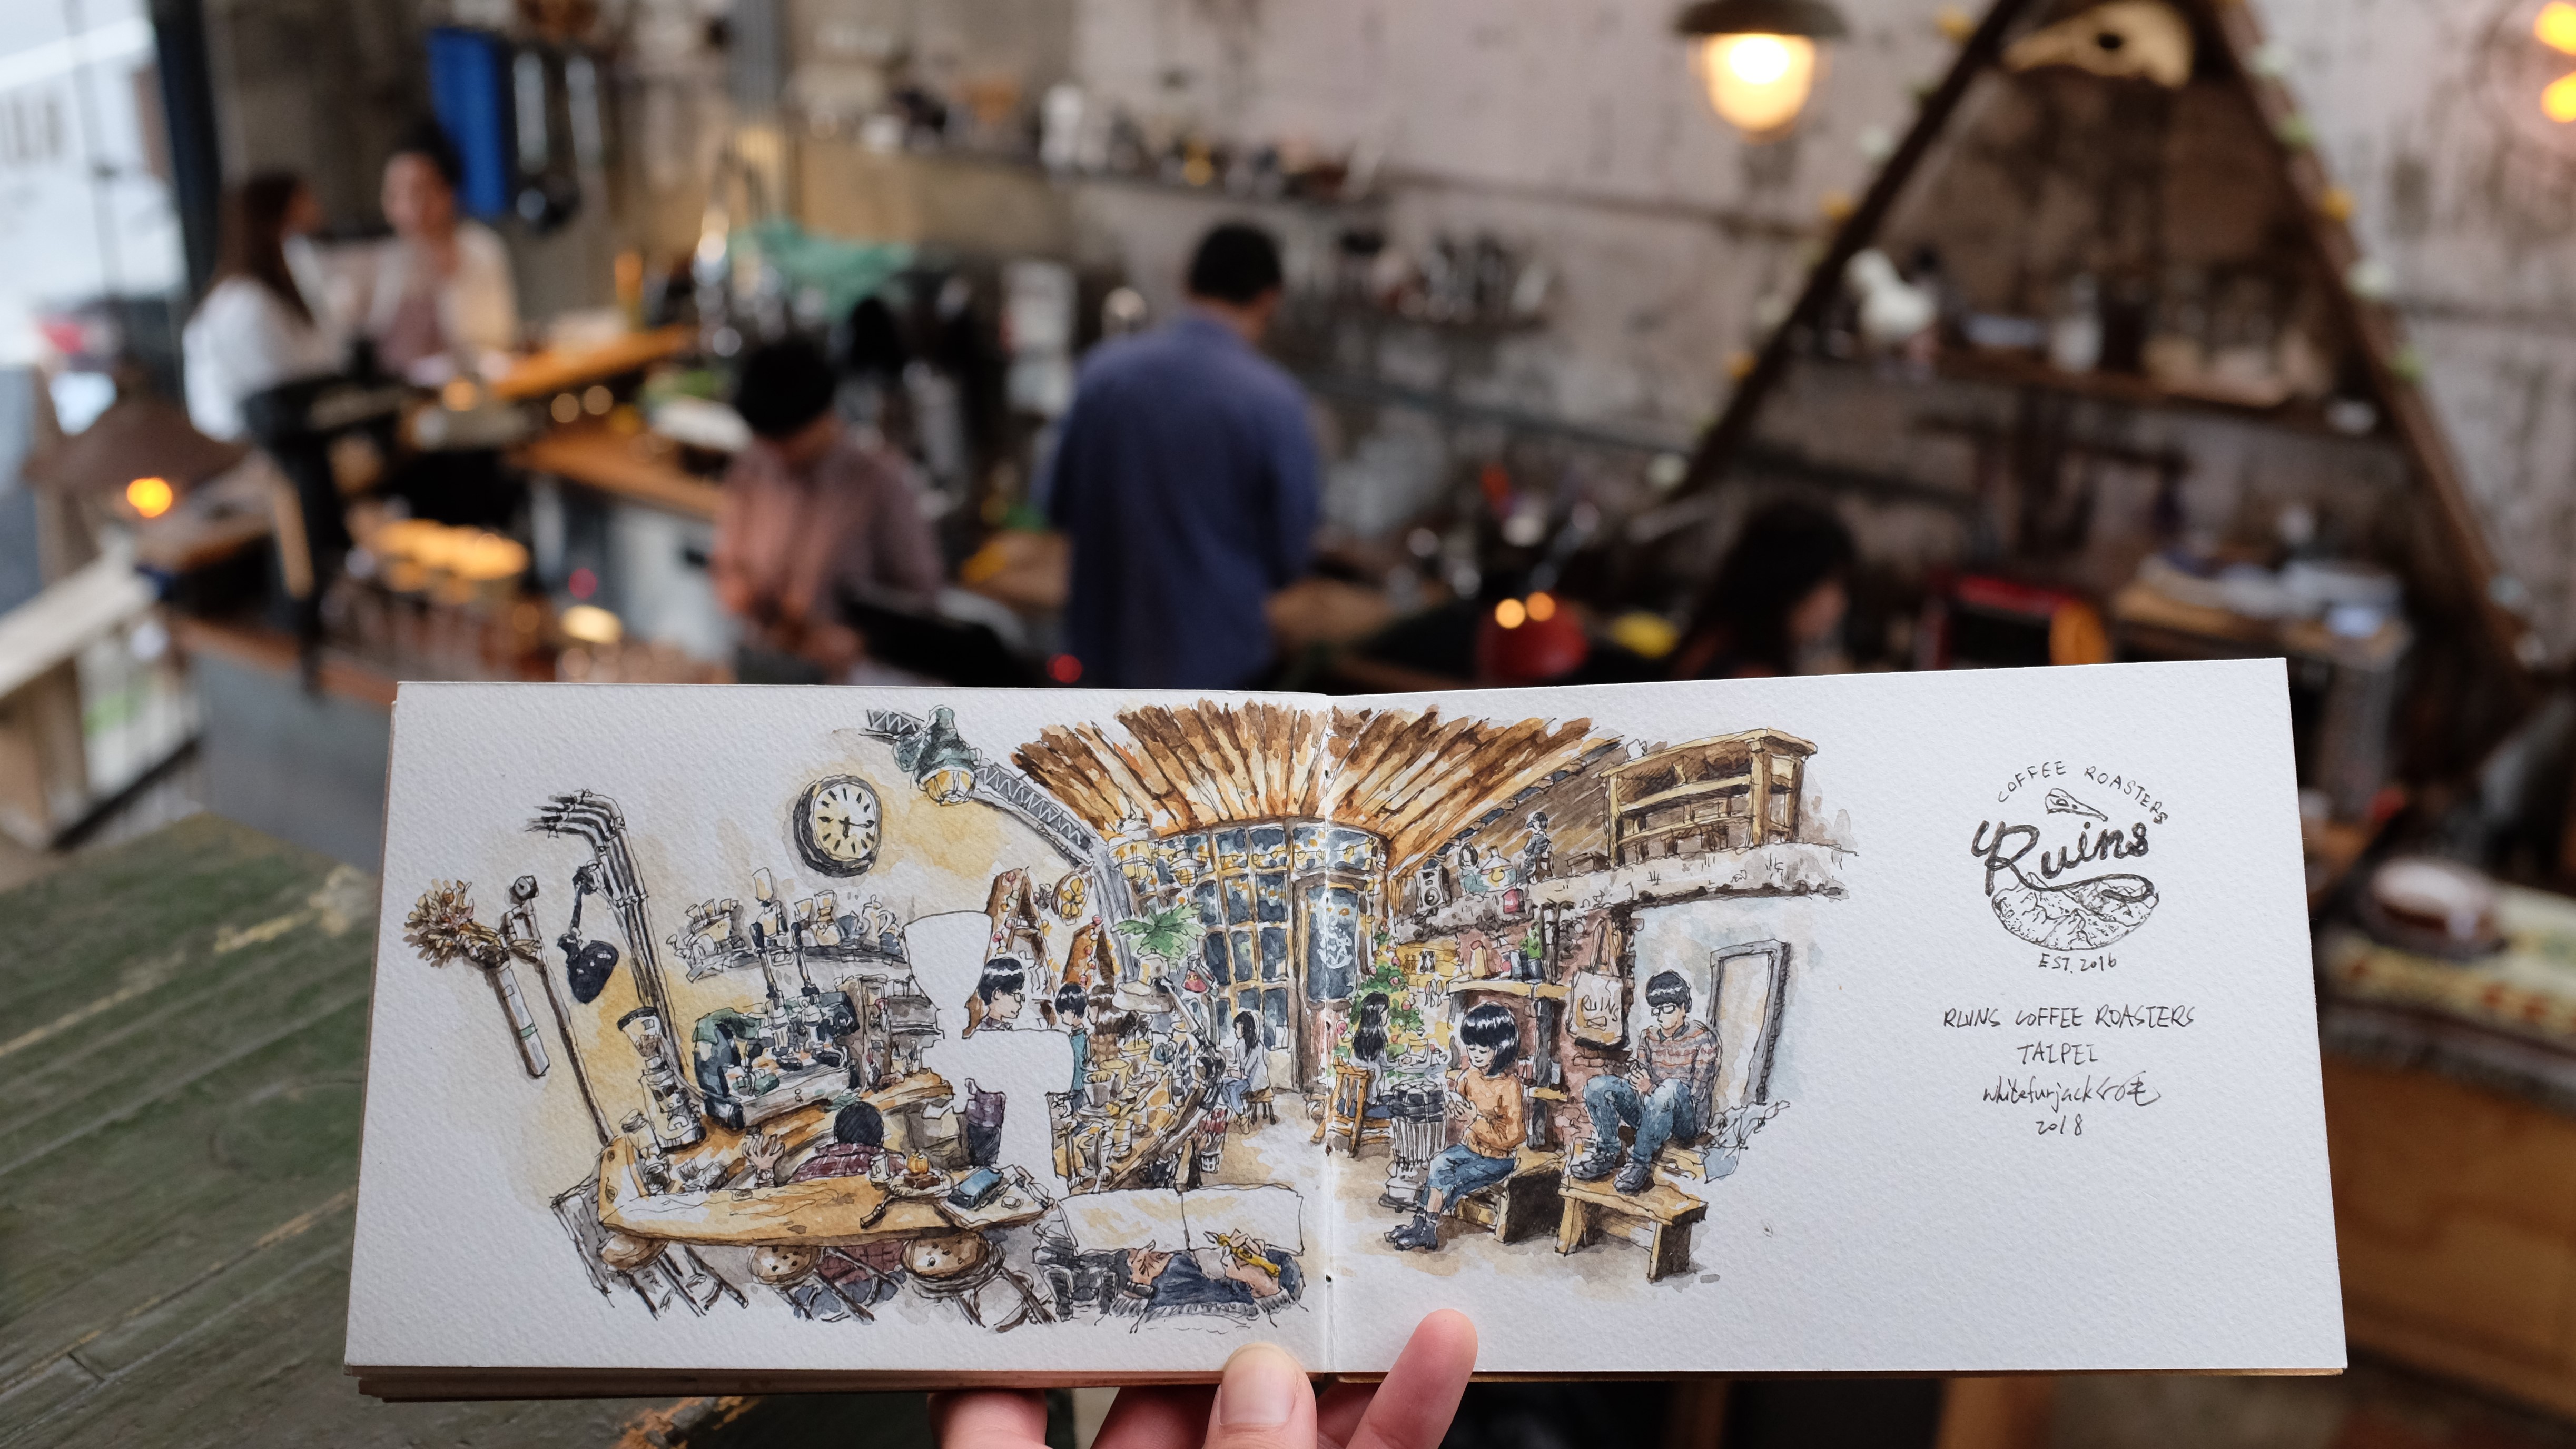 COFFEE ROASTERS
Ruins
EST. 2016
RUINS COFFEE ROASTERS
TAIPEI
whitefurjack白毛
2018
RUINS